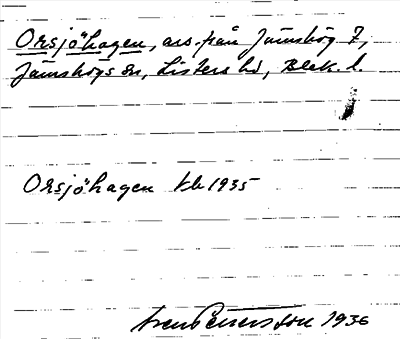 Orsjöhagen, avs. från Jämshög 7,
Jämshögs sn, Listers hd, Blek. l.
Orsjöhagen kb 1935
Sven Petersson 1936